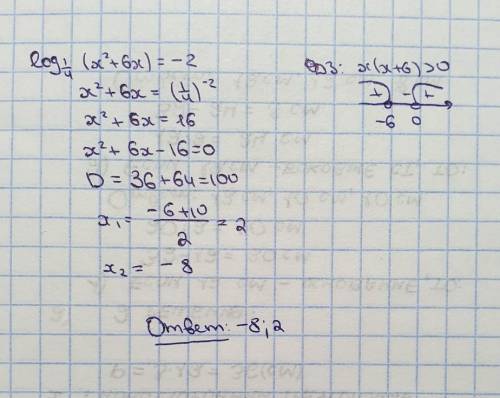 log₁/₄ (x²+6x) = -2
x²+6x = (1/4)⁻²
x²+6x = 16
x²+6x-16=0
D = 36+64=100
x₁ = (-6+10)/2 = 2
x₂ = -8
Ответ: -8; 2
ОДЗ: x(x+6)>0
+ - +
-6 0